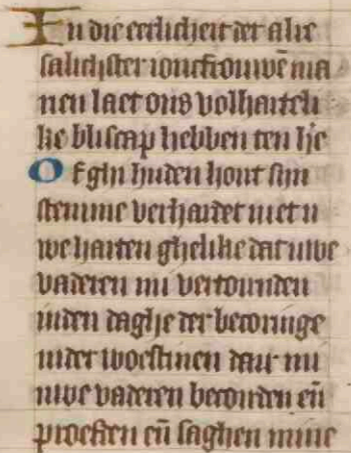 In die eerlicheit der alre
salichster ioncfrouwē ma
rien laet ons volharteli
ke bliscap hebben ten hē
Of ghi huden hout sijn
stemme verhardet niet u
we harten ghelike dat uwe
vaderen mi vertornden
inden daghe der becoringe
inder woestinen daer mi
uwe vaderen becorden eñ
proefden eñ saghen mine